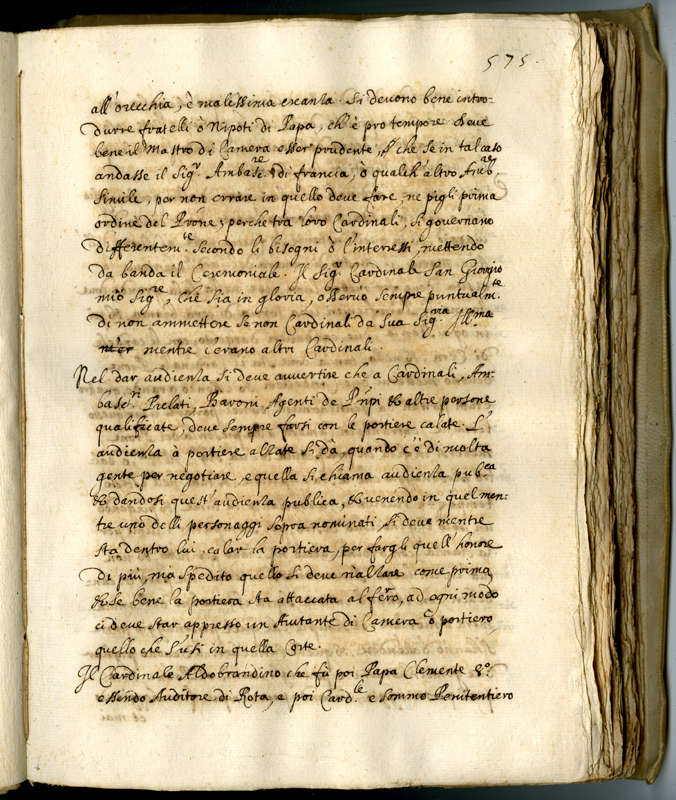 575.
all' orecchia, è malissima creanza. Si devono bene intro-
durre fratelli ò Nipoti di Papa, ch'è pro tempore. Deve
bene il Mastro di Camera esser prudente, che se in tal caso
andasse il Sig.r Ambasc.re di francia, ò qualch' altro Amb.re
simile, per non errare in quello deve fare, ne pigli prima
ordine del Prone; perche tra loro Cardinali, si governano
differentem.te secondo li bisogni ò l'interressi, mettendo
da banda il Ceremoniale. Il Sig.r Cardinale San Giorgio
mio Sig.re, che sia in gloria, osservò sempre puntualm.te
di non ammettere se non Cardinali da Sua Sig.ria Ill.ma
mentre c'erano altri Cardinali.
Nel dar audienza si deve avvertire che a Cardinali, Am-
basc.ri Prelati, Baroni, Agenti de Pnpi & altre persone
qualificate, deve sempre farsi con le portiere calate. L'
audienza à portiere alzate si dà, quando c'è di molta
gente per negotiare, e quella si chiama audienza pub.ca
& dandosi quest' audienza publica, & venendo in quel men-
tre uno delli personaggi sopra nominati si deve mentre
sta dentro lui, calar la portiera, per fargli quell' honore
di più, ma spedito quello si deve rialzare come prima,
& se bene la portiera sta attaccata al ferro, ad ogni modo
ci deve star appresso un Aiutante di Camera ò portiero,
quello che s'usi in quella Corte.
Il Cardinale Aldobrandino che fù poi Papa Clemente 8.o
essendo Auditore di Rota, e poi Card.le e sommo Penitentiero